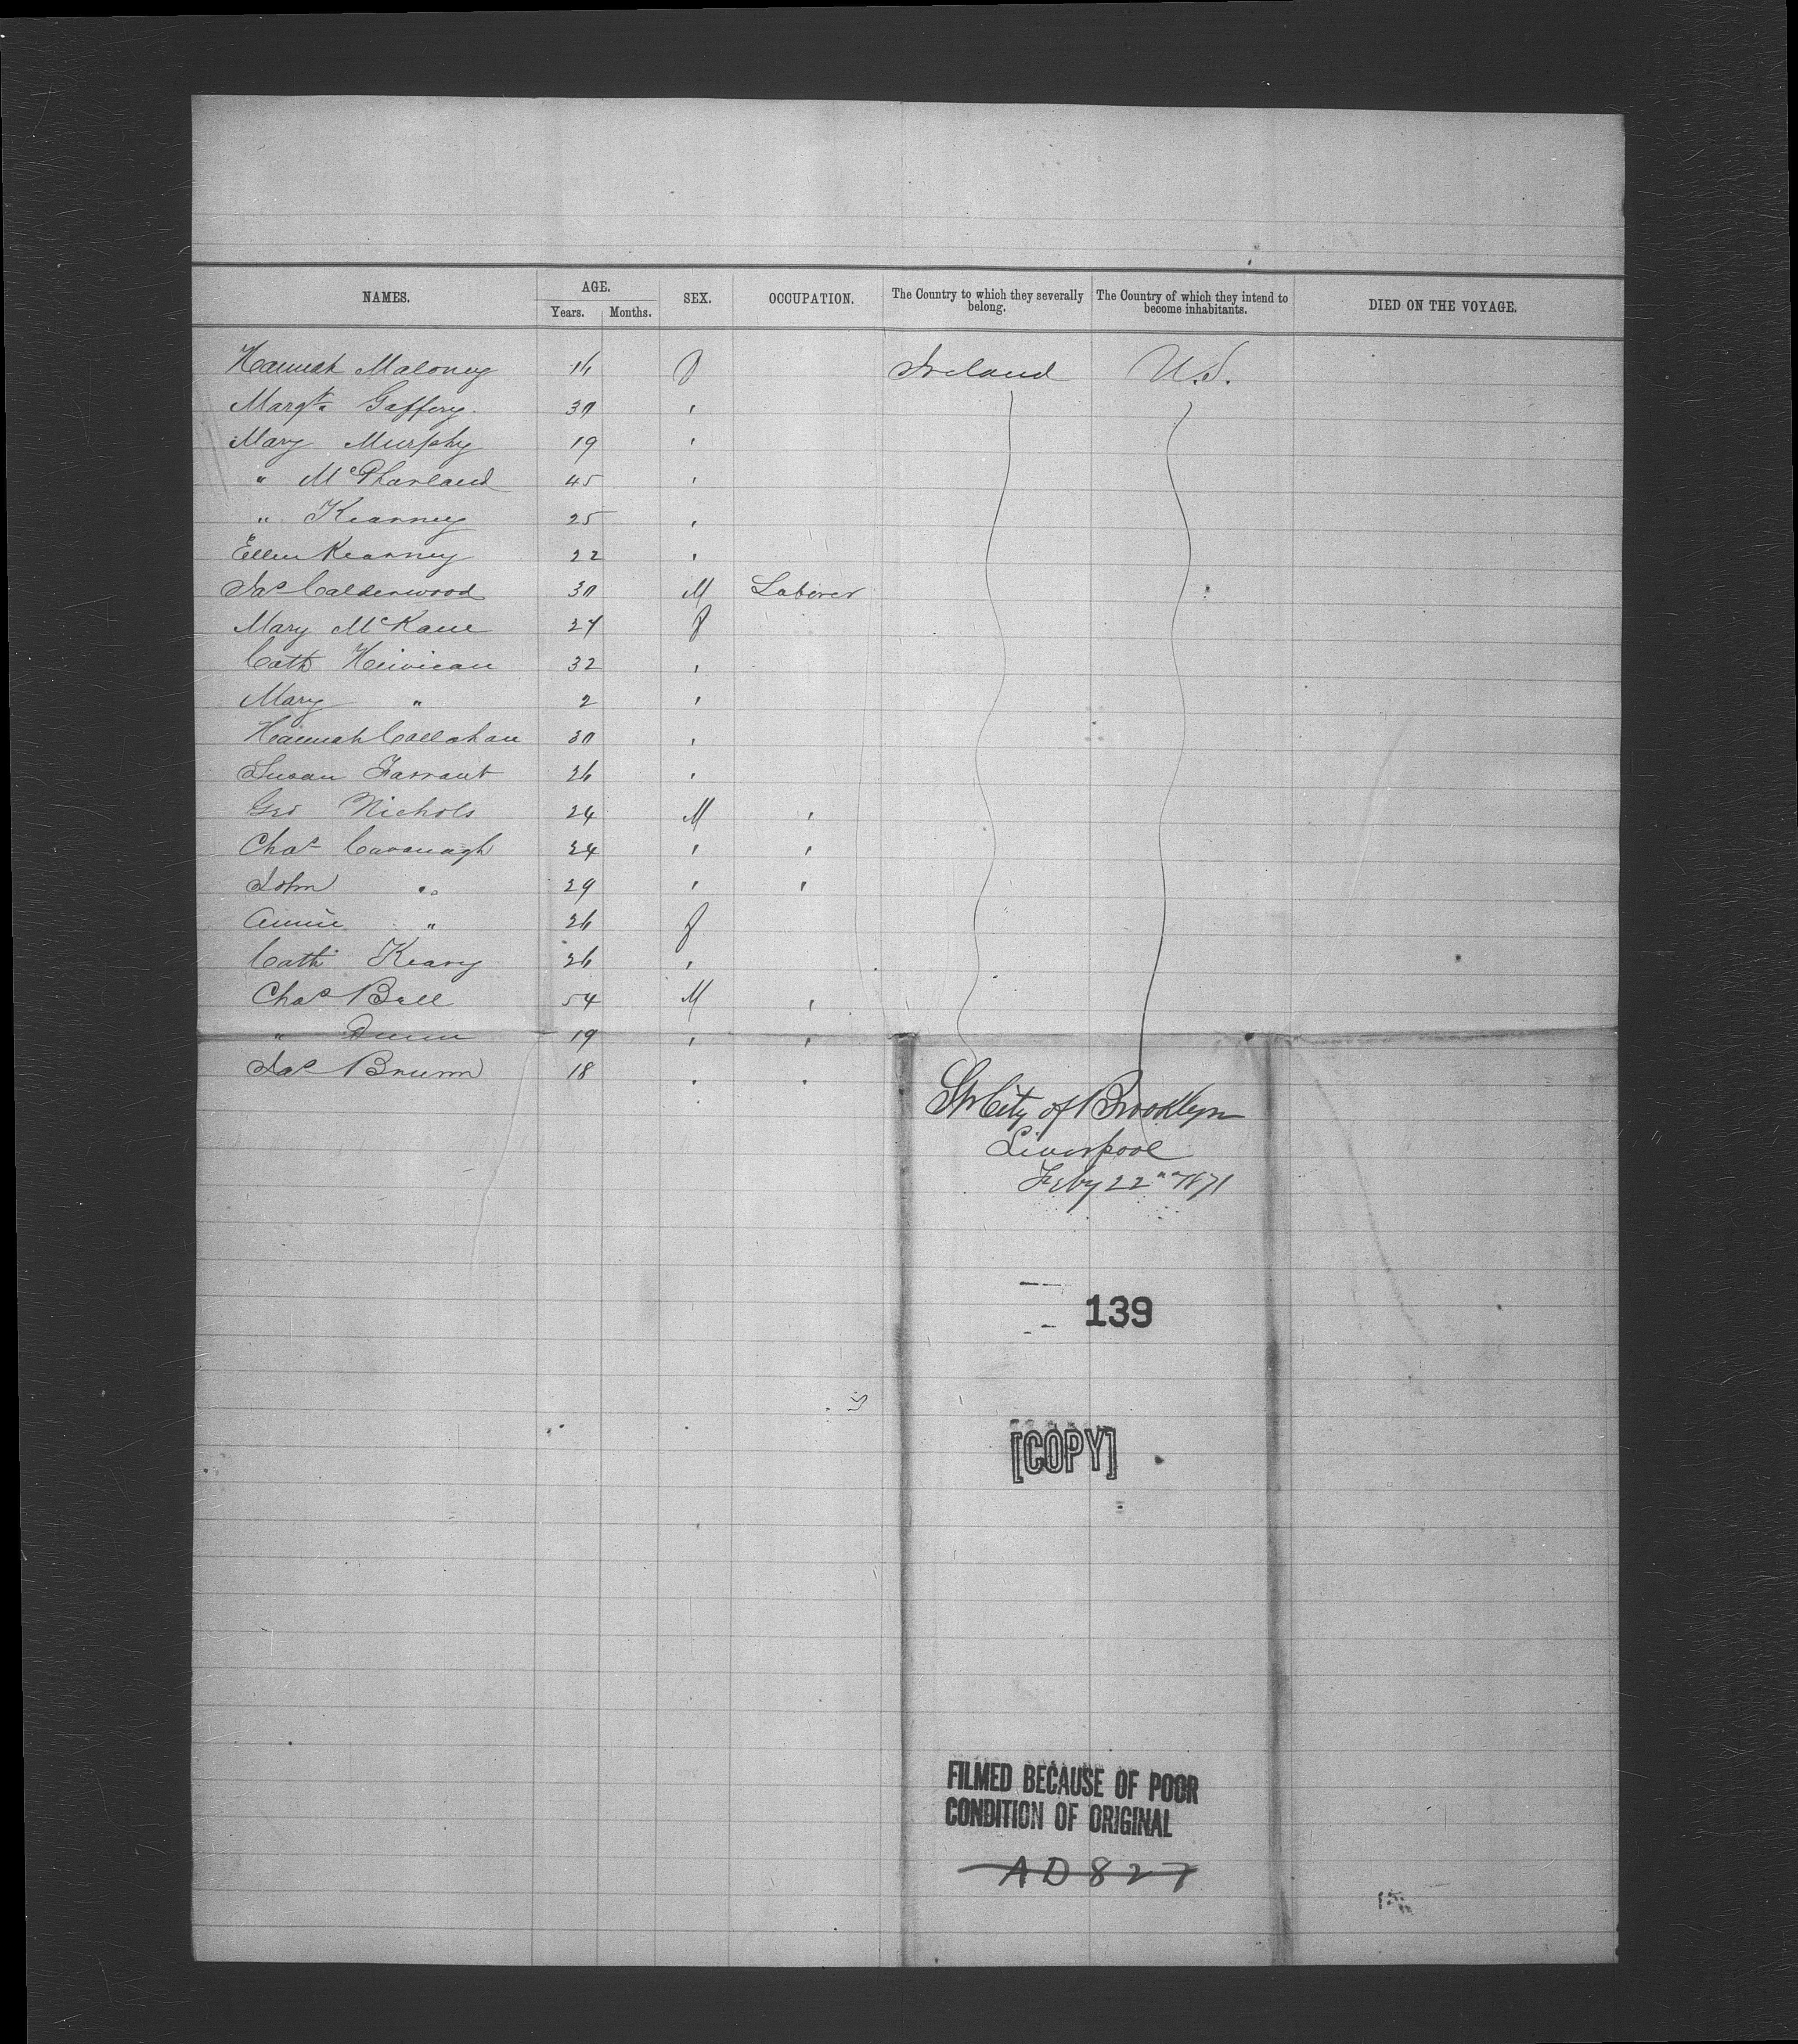 NAMES. AGE. SEX. OCCUPATION. The Country to which they severally belong. The Country of which they intend to become inhabitants. DIED ON THE VOYAGE.
Years. Months.
Hannah Maloney 16 f Ireland U.S.
Margt Gaffery 30 '
Mary Murphy 19 '
" McPharland 45 '
" Kearney 25 '
Ellen Kearney 22 '
Jas Calderwood 30 M Laborer
Mary McKane 27 f
Cath 32 '
Mary " 2 '
Hannah Callahan 30 '
Susan Farrant 26 '
Geo Nichols 24 M '
Chas Cavanagh 24 ' '
John " 29 ' '
Annie " 26 f
Cath Keary 26 '
Chas Bell 54 M '
" Dunn 19 ' '
Jas Brunn 18 ' '
Str City of Brooklyn
Liverpool
Feby 22nd 1871
139
[COPY]
FILMED BECAUSE OF POOR
CONDITION OF ORIGINAL
AD 827